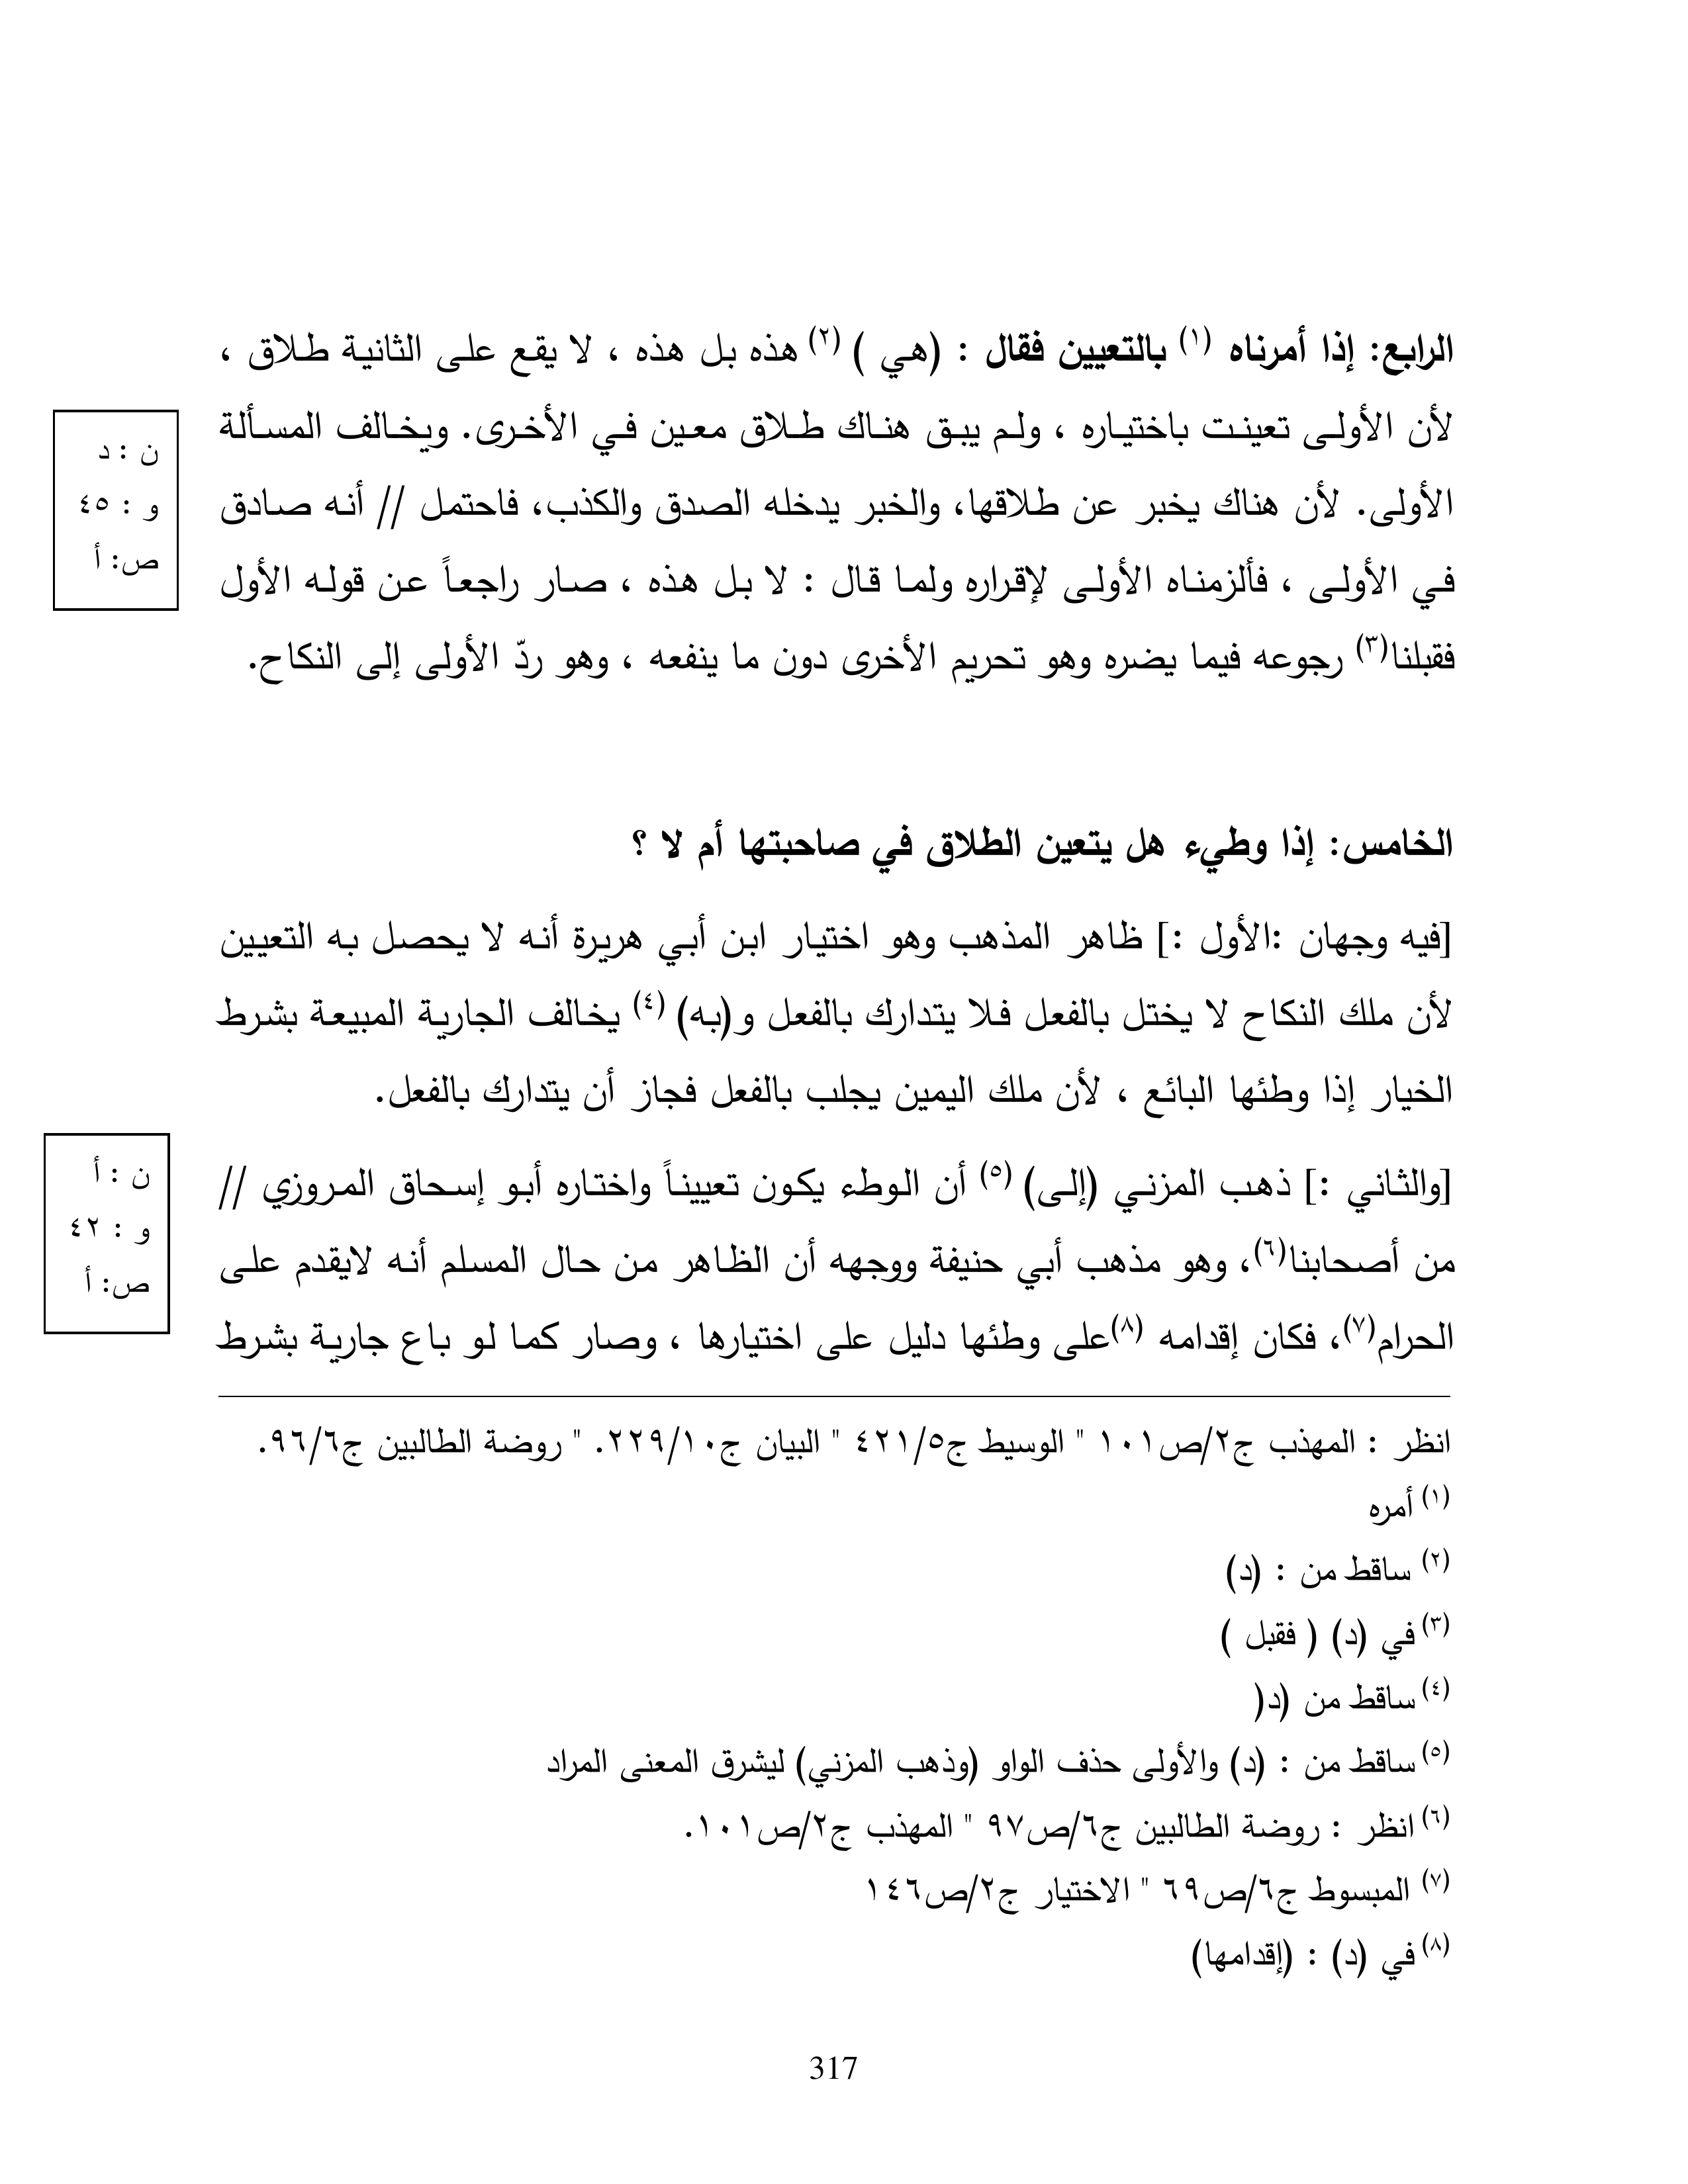 الرابع: إذا أمرناه (١) بالتعيين فقال : (هي ) (٢) هذه بل هذه ، لا يقع على الثانية طلاق ،
لأن الأولى تعينت باختياره ، ولم يبق هناك طلاق معين في الأخرى. ويخالف المسألة
الأولى. لأن هناك يخبر عن طلاقها، والخبر يدخله الصدق والكذب، فاحتمل // أنه صادق
في الأولى ، فألزمناه الأولى لإقراره ولما قال : لا بل هذه ، صار راجعاً عن قوله الأول
فقبلنا(٣) رجوعه فيما يضره وهو تحريم الأخرى دون ما ينفعه ، وهو ردّ الأولى إلى النكاح.
ن : د
و : ٤٥
ص: أ
الخامس: إذا وطيء هل يتعين الطلاق في صاحبتها أم لا ؟
[فيه وجهان :الأول :] ظاهر المذهب وهو اختيار ابن أبي هريرة أنه لا يحصل به التعيين
لأن ملك النكاح لا يختل بالفعل فلا يتدارك بالفعل و(به) (٤) يخالف الجارية المبيعة بشرط
الخيار إذا وطئها البائع ، لأن ملك اليمين يجلب بالفعل فجاز أن يتدارك بالفعل.
[والثاني :] ذهب المزني (إلى) (٥) أن الوطء يكون تعييناً واختاره أبو إسحاق المروزي //
من أصحابنا(٦)، وهو مذهب أبي حنيفة ووجهه أن الظاهر من حال المسلم أنه لايقدم على
الحرام(٧)، فكان إقدامه (٨)على وطئها دليل على اختيارها ، وصار كما لو باع جارية بشرط
ن : أ
و : ٤٢
ص: أ
انظر : المهذب ج٢/ص١٠١ " الوسيط ج٤٢١/٥ " البيان ج٢٢٩/١٠. " روضة الطالبين ج٩٦/٦.
(١) أمره
(٢) ساقط من : (د)
(٣) في (د) ( فقبل )
(٤) ساقط من (د(
(٥) ساقط من : (د) والأولى حذف الواو (وذهب المزني) ليشرق المعنى المراد
(٦) انظر : روضة الطالبين ج٦/ص٩٧ " المهذب ج٢/ص١٠١.
(٧) المبسوط ج٦/ص٦٩ " الاختيار ج٢/ص١٤٦
(٨) في (د) : (إقدامها)
317